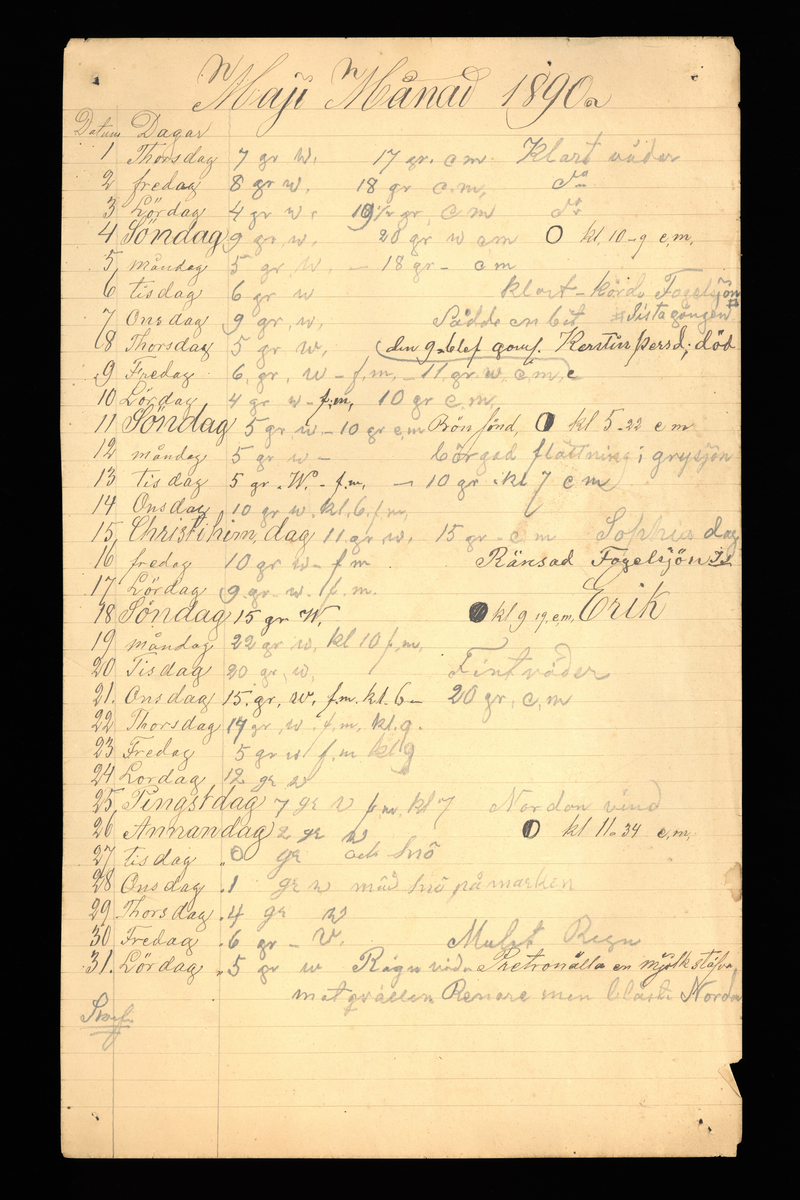 Maji Månad 1890
Datum Dagar
1 Thorsdag 7 gr w. 17 gr. e m Klart väder
2 fredag 8 gr w, 18 gr e.m, do
3 Lördag 4 gr w. 19 1/2 gr, e m do
4 Söndag 9 gr, w, 20 gr w em kl, 10-9 e,m,
5, måndag 5 gr, w, - 18 gr - em
6 tisdag 6 gr w klart - körde Fogelsjön
7 Onsdag 9 gr, w, Sådde en bit #Sistagången
8 Thorsdag 5 gr w, (den 9 blef Kerstin Persd; död
9 Fredag 6, gr, w - f,m, - 11 gr w e,m,
10 Lördag 4 gr w - f,m, 10 gr e m
11 Söndag 5 gr w - 10 gr e,m Bön sönd, kl 5-22 e m
12 måndag 5 gr w - börgad flottning i grysjön
13 tisdag 5 gr. W. - f.m, - 10 gr. kl 7 e m
14 Onsdag 10 gr w, kl. 6, f,m,
15, Christihim,dag 11 gr w, 15 gr - e m Sophia dag
16 fredag 10 gr w - f m Ränsad Fogelsjön
17 Lördag 9 gr. w. f.m.
18 Söndag 15 gr W. kl 9 19, e,m, Erik
19 måndag 22 gr w, kl 10 f,m,
20 Tisdag 20 gr, w, Fint väder
21. Onsdag 15. gr, w. f.m. kl. 6 - 20 gr, e,m
22 Thorsdag 14 gr, w. f.m, kl. 9.
23 Fredag 5 gr w f,m kl 9
24 Lördag 12 gr w
25, Pingstdag 7 gr w f,m, kl 7 Nordan vind
26 Annandag 2 gr w kl 11-34 e,m,
27 tisdag 0 gr och snö
28 Onsdag 1 gr w mäd snö på marken
29 Thorsdag 4 gr w
30 Fredag 6 gr - W. Mulet Regn
31. Lördag 5 gr w Rägn väder Pretronälla en mjölkstäfva
mot qvällen Renare men blåste Nordan